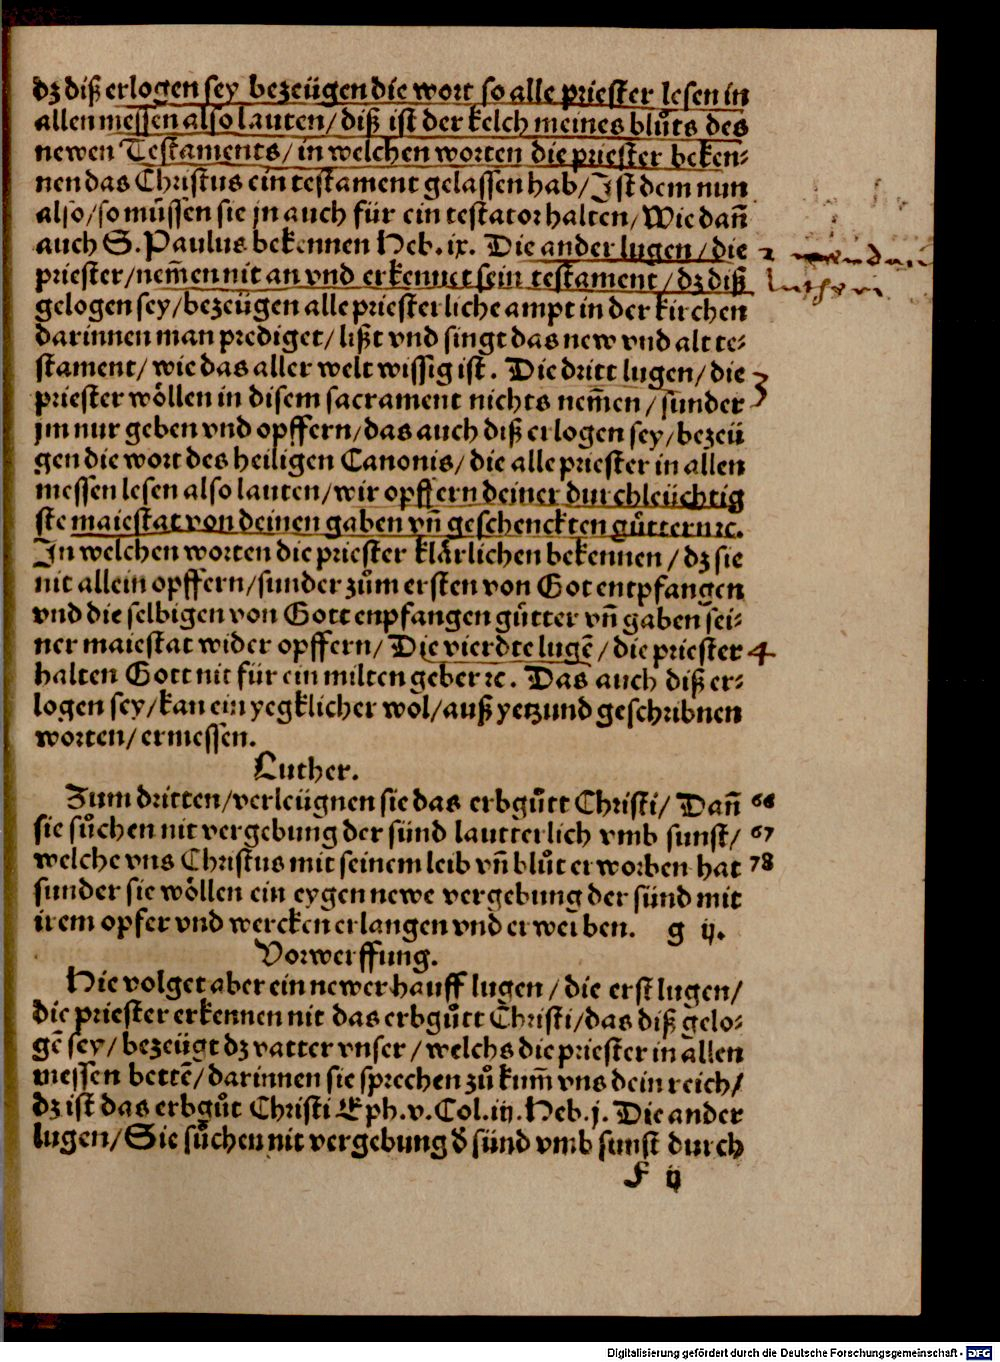 dz diß erlogen sey bezeügen die wort so alle priester lesen in
allen messen also lauten/ diß ist der kelch meines blůts des
newen Testaments/ in welchen worten die priester beken⸗
nen das Christus ein testament gelassen hab/ Ist dem nun
also/ so müssen sie jn auch für ein testator halten/ Wie dañ
auch S. Paulus bekennen Heb. ix. Die ander lugen/ die 2
priester/ nem̃en nit an vnd erkennet sein testament/ dz diß lutheri
gelogen sey/ bezeügen alle priesterliche ampt in der kirchen
darinnen man prediget/ lißt vnd singt das new vnd alt te⸗
stament/ wie das aller welt wissig ist. Die dritt lugen/ die 3
priester wöllen in disem sacrament nichts nem̃en/ sunder
jm nur geben vnd opffern/ das auch diß erlogen sey/ bezeü
gen die wort des heiligen Canonis/ die alle priester in allen
messen lesen also lauten/ wir opffern deiner durchleüchtig
ste maiestat von deinen gaben vñ geschenckten gůttern ꝛc.
In welchen worten die priester klärlichen bekennen/ dz sie
nit allein opffern/ sunder zům ersten von Got entpfangen
vnd die selbigen von Gott enpfangen gůtter vñ gaben sei⸗
ner maiestat wider opffern/ Die vierdte lugẽ/ die priester 4
halten Gott nit für ein milten geber ꝛc. Das auch diß er⸗
logen sey/ kan ein yegklicher wol/ auß yetzund geschribnen
worten/ ermessen.
Luther.
Zum dritten/ verleügnen sie das erbgůtt Christi/ Dañ 66
sie sůchen nit vergebung der sünd lautterlich vmb sunst/ 67
welche vns Christus mit seinem leib vñ blůt erworben hat 78
sunder sie wöllen ein eygen newe vergebung der sünd mit
irem opfer vnd wercken erlangen vnd erweiben. g ij.
Vorwerffung.
Hie volget aber ein newer hauff lugen/ die erst lugen/
die priester erkennen nit das erbgůtt Christi/ das diß gelo⸗
gẽ sey/ bezeügt dz vatter vnser/ welchs die priester in allen
messen bettẽ/ darinnen sie sprechen zů kum̃ vns dein reich/
dz ist das erbgůt Christi Eph. v. Col. iij. Heb. j. Die ander
lugen/ Sie sůchen nit vergebung d̕ sünd vmb sunst durch
f ij
Digitalisierung gefördert durch die Deutsche Forschungsgemeinschaft - DFG